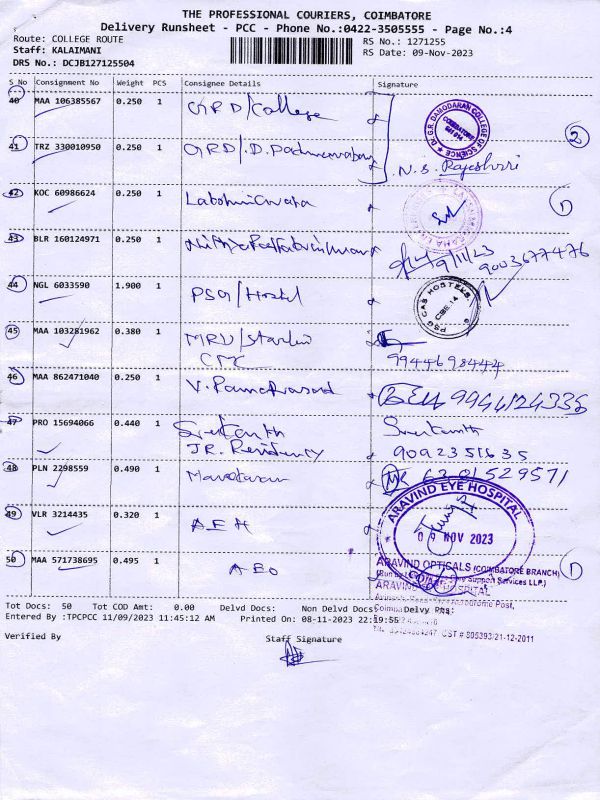 THE PROFESSIONAL COURIERS, COIMBATORE
Delivery Runsheet - PCC - Phone No.:0422-3505555 - Page No.:4
Route: COLLEGE ROUTE
RS No.: 1271255
Staff: KALAIMANI
RS Date: 09-Nov-2023
DRS No.: DCJB127125504
S No Consignment No Weight PCS Consignee Details Signature
40 MAA 106385567 0.250 1 GRD/College
41 TRZ 330010950 0.250 1 GRD/.D. N.S. Rajeshwri
2
42 KOC 60986624 0.250 1
43 BLR 160124971 0.250 1 9/11/23 9003677476
44 NGL 6033590 1.900 1 PSG/Hostel
PSG CAS HOSTELS CBE-14
45 MAA 103281962 0.380 1 MRU/
9944698444
46 MAA 862471040 0.250 1 V. Ramaprasad
47 PRO 15694066 0.440 1 Srikanth Srikanth
JR. Residency 9092351635
48 PLN 2298559 0.490 1 Manoharan
49 VLR 3214435 0.320 1 AEH
ARAVIND EYE HOSPITAL
09 NOV 2023
50 MAA 571738695 0.495 1 ABO
ARAVIND OPTICALS (COIMBATORE BRANCH)
Support Services LLP.)
HOSPITAL
CST # 805393/21-12-2011
Tot Docs: 50 Tot COD Amt: 0.00 Delvd Docs: Non Delvd Docs: Delvy
Entered By :TPCPCC 11/09/2023 11:45:12 AM Printed On: 08-11-2023
Verified By Staff Signature